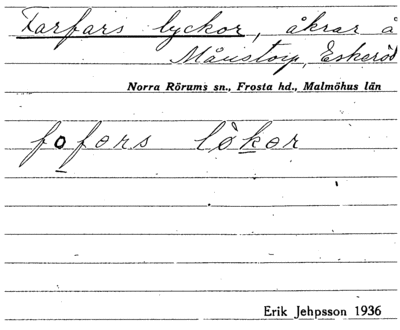 Farfars lyckor, åkrar å
Månstorp, Eskeröd
Norra Rörums sn., Frosta hd., Malmöhus län
fo̱fərs lòḵər
Erik Jehpsson 1936